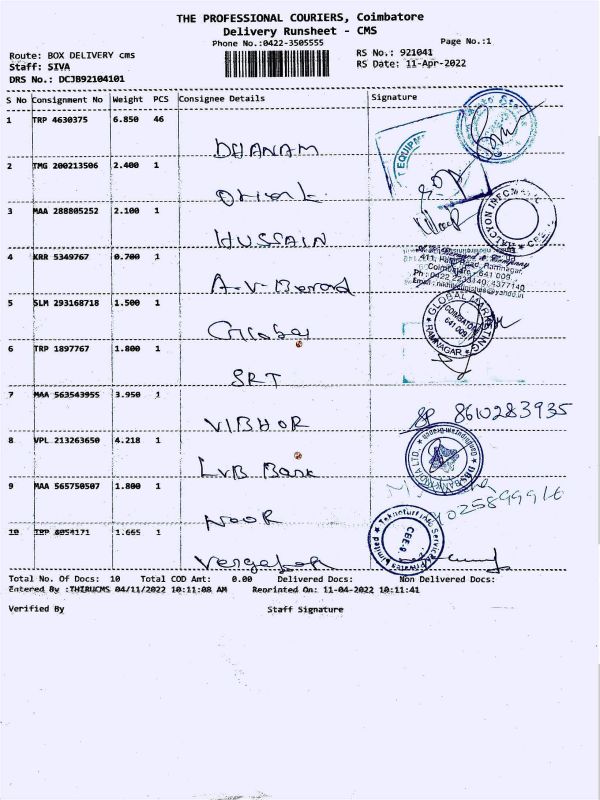 THE PROFESSIONAL COURIERS, Coimbatore
Delivery Runsheet - CMS
Phone No.:0422-3505555
Page No.:1
Route: BOX DELIVERY cms
Staff: SIVA
DRS No.: DCJB92104101
RS No.: 921041
RS Date: 11-Apr-2022
S No Consignment No Weight PCS Consignee Details Signature
1 TRP 4630375 6.850 46
DHANAM
EQUIPM
2 TMG 200213506 2.400 1
3 MAA 288805252 2.100 1
HUSSAIN
4 KRR 5349767 0.700 1
Coimbatore - 641 009
Ph : 0422 2233140, 4377140
5 SLM 293168718 1.500 1
Global
GLOBAL MARKETING
COIMBATORE
641 009
RAMNAGAR
6 TRP 1897767 1.800 1
SRT
7 MAA 563543955 3.950 1
VIBHOR
8610283935
8 VPL 213263650 4.218 1
LVB Bank
9 MAA 565750507 1.800 1
NOOR
10 TRP 8054171 1.665 1
CBE-9
Total No. Of Docs: 10 Total COD Amt: 0.00 Delivered Docs: Non Delivered Docs:
Entered By :THIRUCMS 04/11/2022 10:11:08 AM Reprinted On: 11-04-2022 10:11:41
Verified By Staff Signature